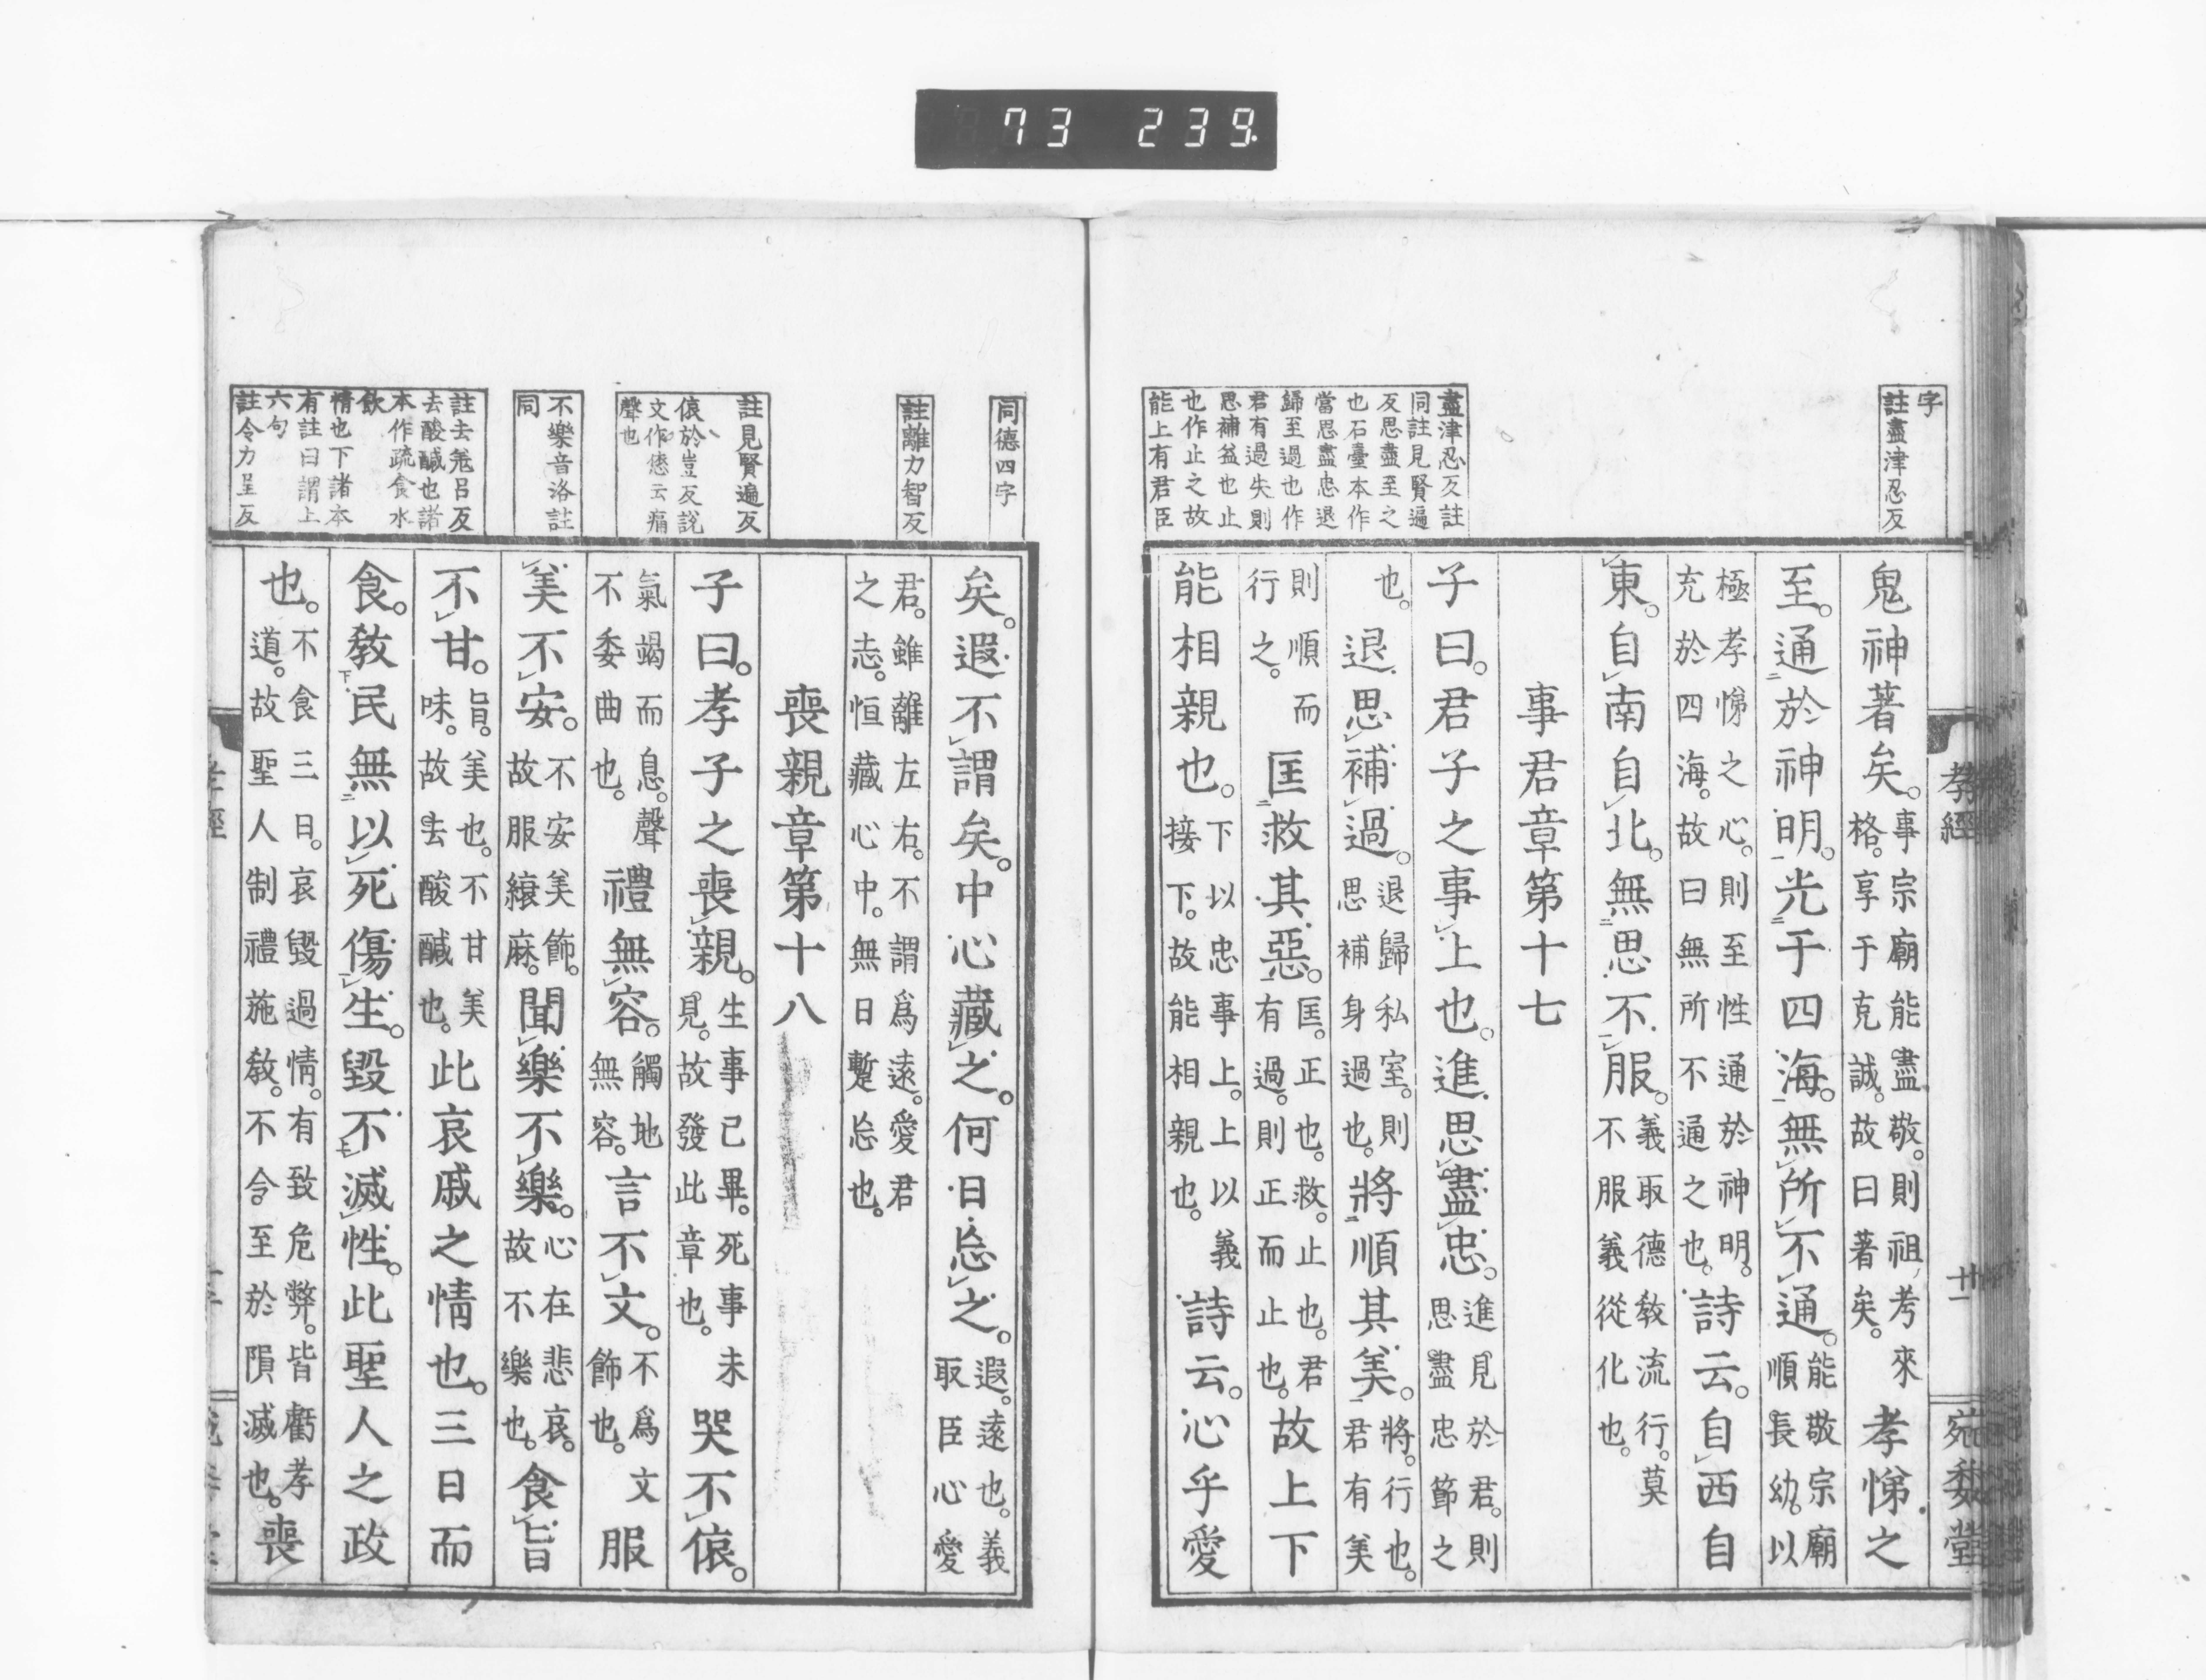 73 239
字
註盡津忍反
盡津忍反註
同註見賢遍
反思盡至之
也石臺本作
當思盡忠退
歸至過也作
君有過失則
思補益也止
也作止之故
能上有君臣
孝經 廿一 宛委堂
鬼神著矣。事宗廟能盡敬。則祖考來格。享于克誠。故曰著矣。孝悌之
至。通於神明。光于四海。無所不通。能敬宗廟順長幼。以
極孝悌之心。則至性通於神明。充於四海。故曰無所不通之也。詩云。自西自
東。自南自北。無思不服。義取德教流行。莫不服義從化也。
事君章第十七
子曰。君子之事上也。進思盡忠。進見於君。則思盡忠節之
也。退思補過。退歸私室。則思補身過也。將順其美。將。行也。君有美
則順而行之。匡救其惡。匡。正也。救。止也。君有過。則正而止也。故上下
能相親也。下以忠事上。上以義接下。故能相親也。詩云。心乎愛
同德四字
註離力智反
註見賢遍反
偯於豈反說
文作㥋云痛
聲也
不樂音洛註
同
註去羌呂反
去酸醎也諸
本作疏食水
飲
情也下諸本
有註曰謂上
六句
註令力呈反
矣。遐不謂矣。中心藏之。何日忘之。遐。遠也。義取臣心愛
君。雖離左右。不謂爲遠。愛君之志。恒藏心中。無日蹔忘也。
喪親章第十八
子曰。孝子之喪親。生事已畢。死事未見。故發此章也。哭不偯。
氣竭而息。聲不委曲也。禮無容。觸地無容。言不文。不爲文飾也。服
美不安。不安美飾。故服縗麻。聞樂不樂。心在悲哀。故不樂也。食旨
不甘。旨。美也。不甘美味。故去酸醎也。此哀戚之情也。三日而
食。教民無以死傷生。毀不滅性。此聖人之政
也。不食三日。哀毀過情。有致危弊。皆虧孝道。故聖人制禮施教。不令至於隕滅也。喪